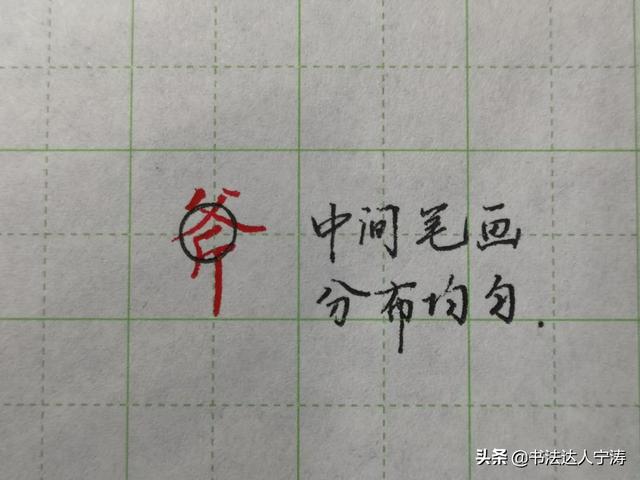 斧
中间笔画
分布均匀.
头条 @书法达人宁涛